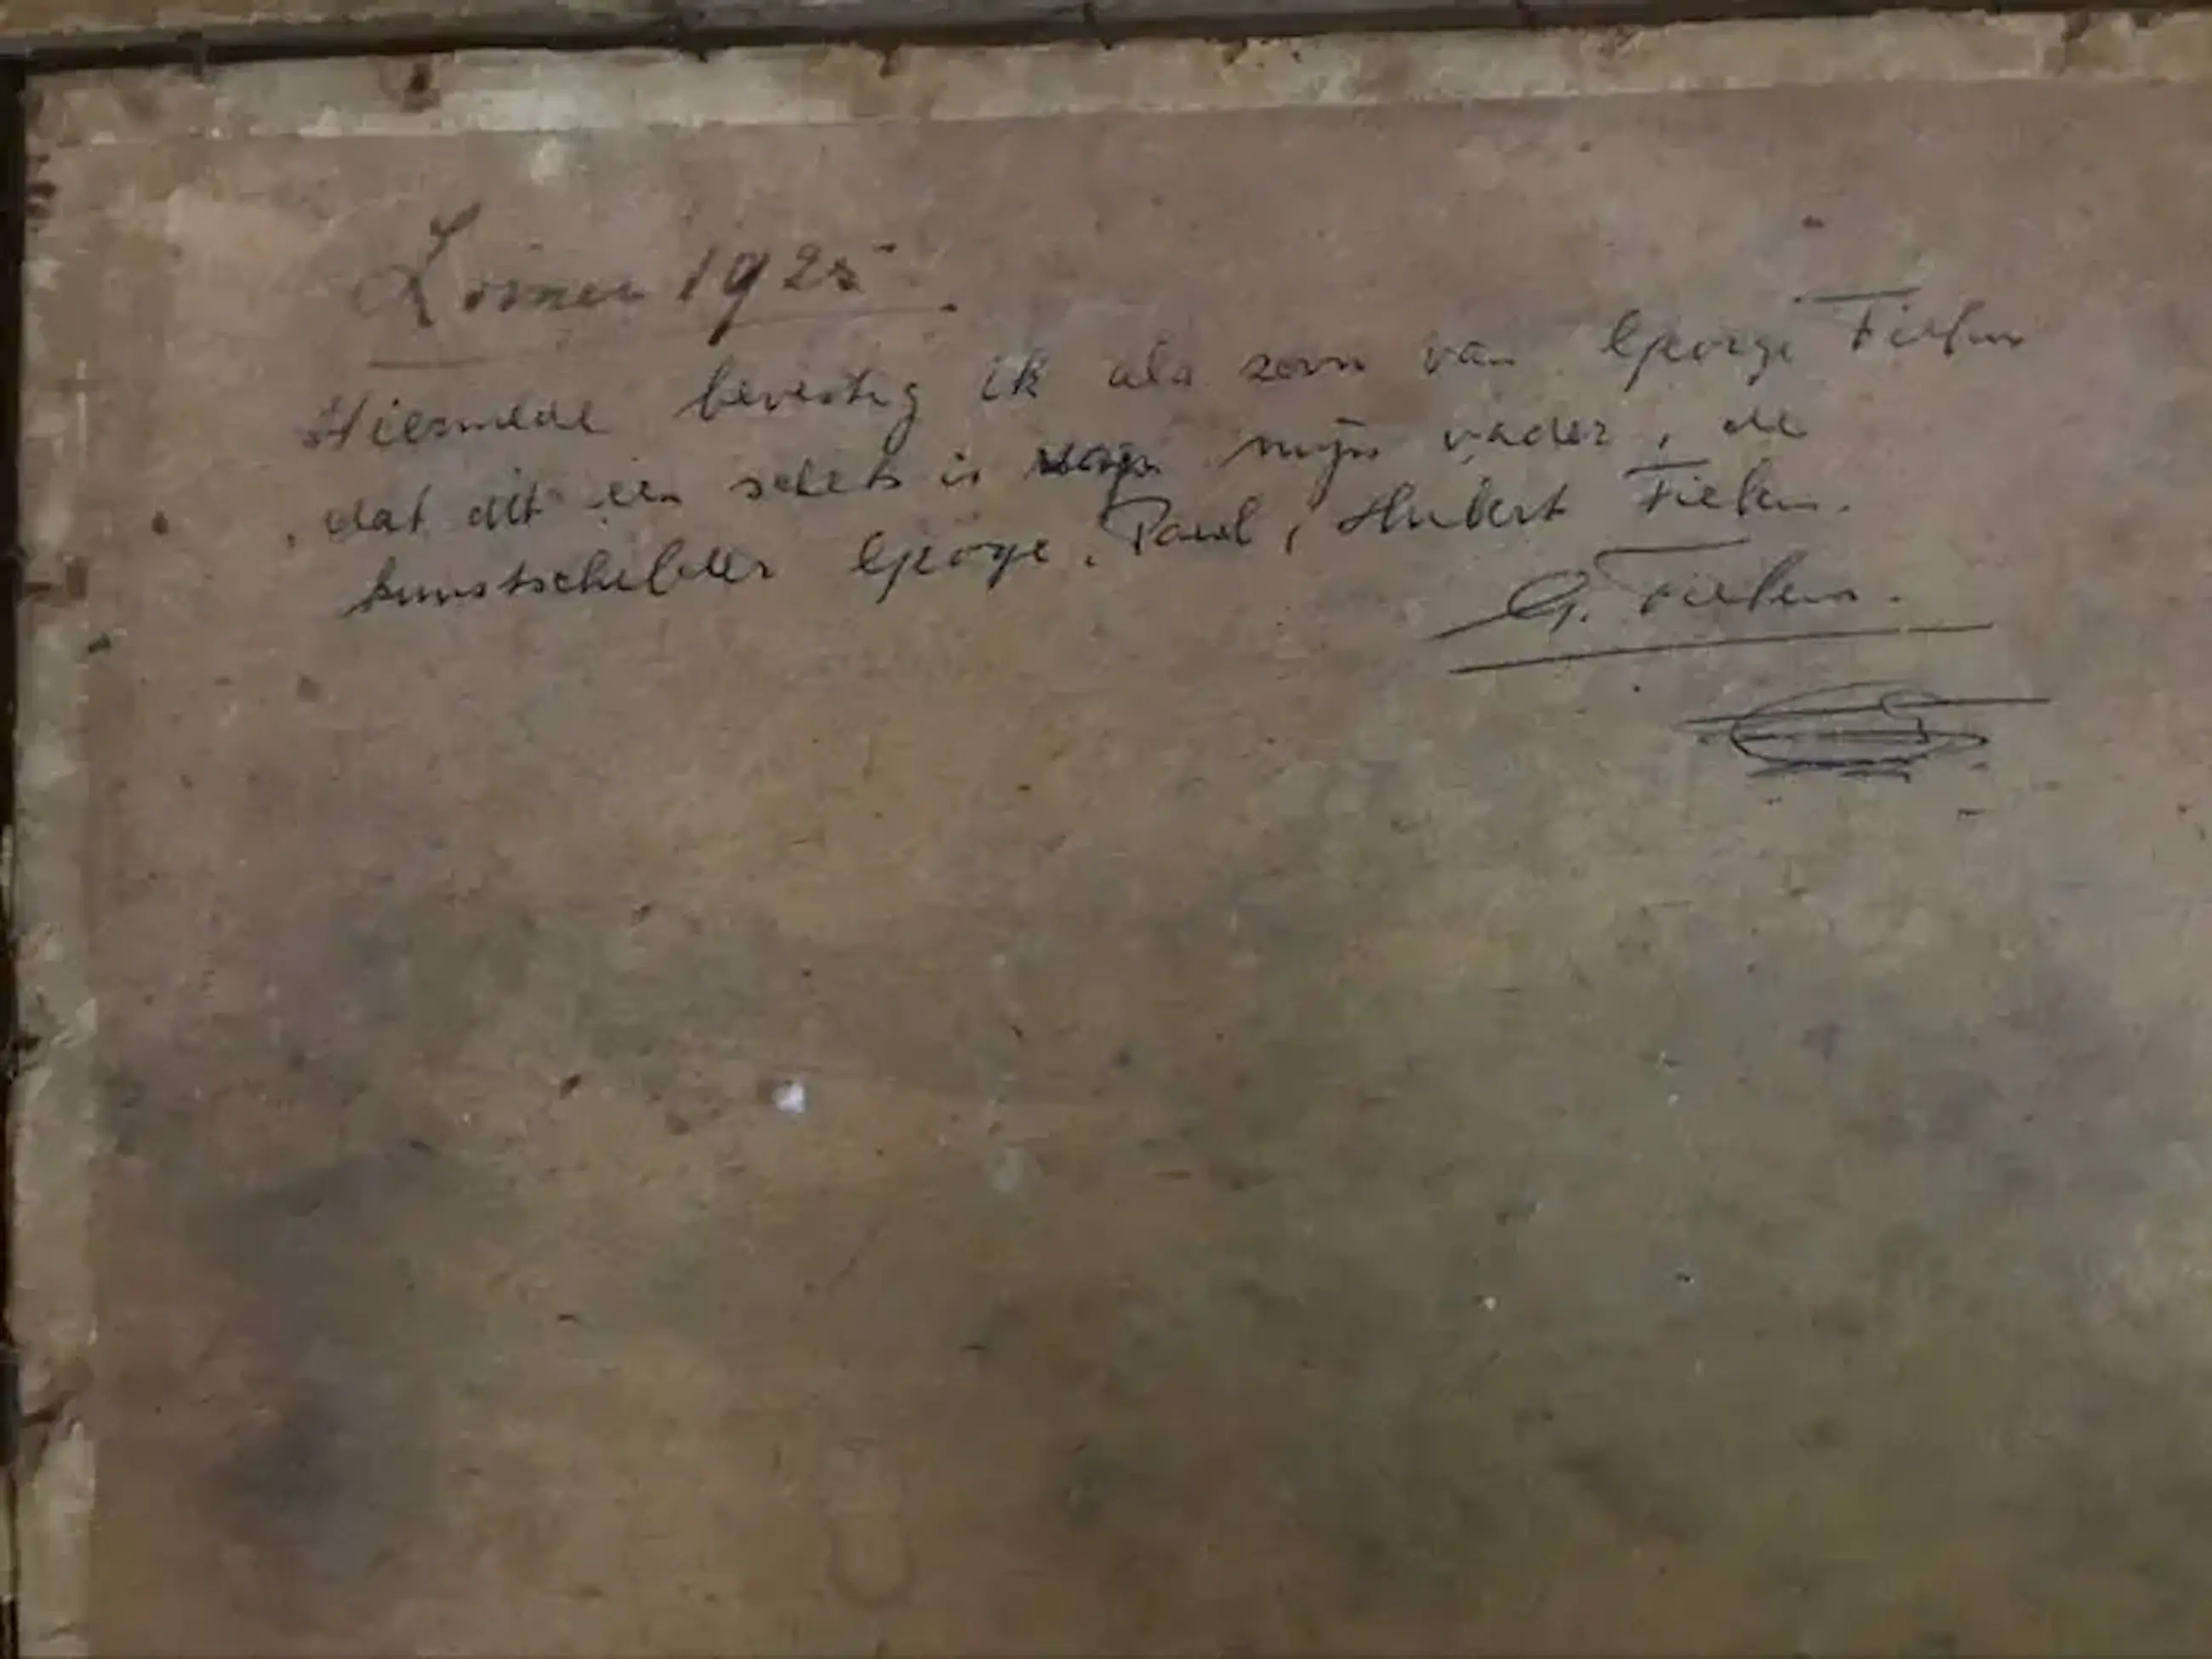 Losner 1925
Hiermede bevestig ik als zoon van George Fieken
dat dit een schets is van mijn vader, de
kunstschilder George, Paul, Hubert Fieken.
G. Fieken.